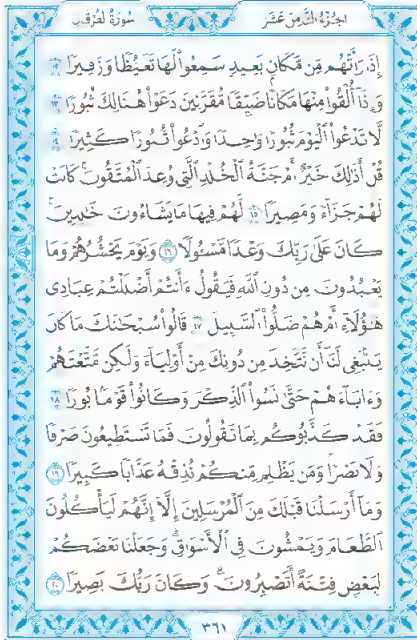 سُورَةُ الفُرْقَانِ
الجُزْءُ الثَّامِنَ عَشَرَ
إِذَا رَأَتْهُم مِّن مَّكَانٍ بَعِيدٍ سَمِعُوا۟ لَهَا تَغَيُّظًا وَزَفِيرًا ١٢
وَإِذَآ أُلْقُوا۟ مِنْهَا مَكَانًا ضَيِّقًا مُّقَرَّنِينَ دَعَوْا۟ هُنَالِكَ ثُبُورًا ١٣
لَّا تَدْعُوا۟ ٱلْيَوْمَ ثُبُورًا وَٰحِدًا وَٱدْعُوا۟ ثُبُورًا كَثِيرًا ١٤
قُلْ أَذَٰلِكَ خَيْرٌ أَمْ جَنَّةُ ٱلْخُلْدِ ٱلَّتِى وُعِدَ ٱلْمُتَّقُونَ ۚ كَانَتْ
لَهُمْ جَزَآءً وَمَصِيرًا ١٥ لَّهُمْ فِيهَا مَا يَشَآءُونَ خَٰلِدِينَ ۚ
كَانَ عَلَىٰ رَبِّكَ وَعْدًا مَّسْـُٔولًا ١٦ وَيَوْمَ يَحْشُرُهُمْ وَمَا
يَعْبُدُونَ مِن دُونِ ٱللَّهِ فَيَقُولُ ءَأَنتُمْ أَضْلَلْتُمْ عِبَادِى
هَٰٓؤُلَآءِ أَمْ هُمْ ضَلُّوا۟ ٱلسَّبِيلَ ١٧ قَالُوا۟ سُبْحَٰنَكَ مَا كَانَ
يَنۢبَغِى لَنَآ أَن نَّتَّخِذَ مِن دُونِكَ مِنْ أَوْلِيَآءَ وَلَٰكِن مَّتَّعْتَهُمْ
وَءَابَآءَهُمْ حَتَّىٰ نَسُوا۟ ٱلذِّكْرَ وَكَانُوا۟ قَوْمًۢا بُورًا ١٨
فَقَدْ كَذَّبُوكُم بِمَا تَقُولُونَ فَمَا تَسْتَطِيعُونَ صَرْفًا
وَلَا نَصْرًا ۚ وَمَن يَظْلِم مِّنكُمْ نُذِقْهُ عَذَابًا كَبِيرًا ١٩
وَمَآ أَرْسَلْنَا قَبْلَكَ مِنَ ٱلْمُرْسَلِينَ إِلَّآ إِنَّهُمْ لَيَأْكُلُونَ
ٱلطَّعَامَ وَيَمْشُونَ فِى ٱلْأَسْوَاقِ ۗ وَجَعَلْنَا بَعْضَكُمْ
لِبَعْضٍ فِتْنَةً أَتَصْبِرُونَ ۗ وَكَانَ رَبُّكَ بَصِيرًا ٢٠
٣٦١